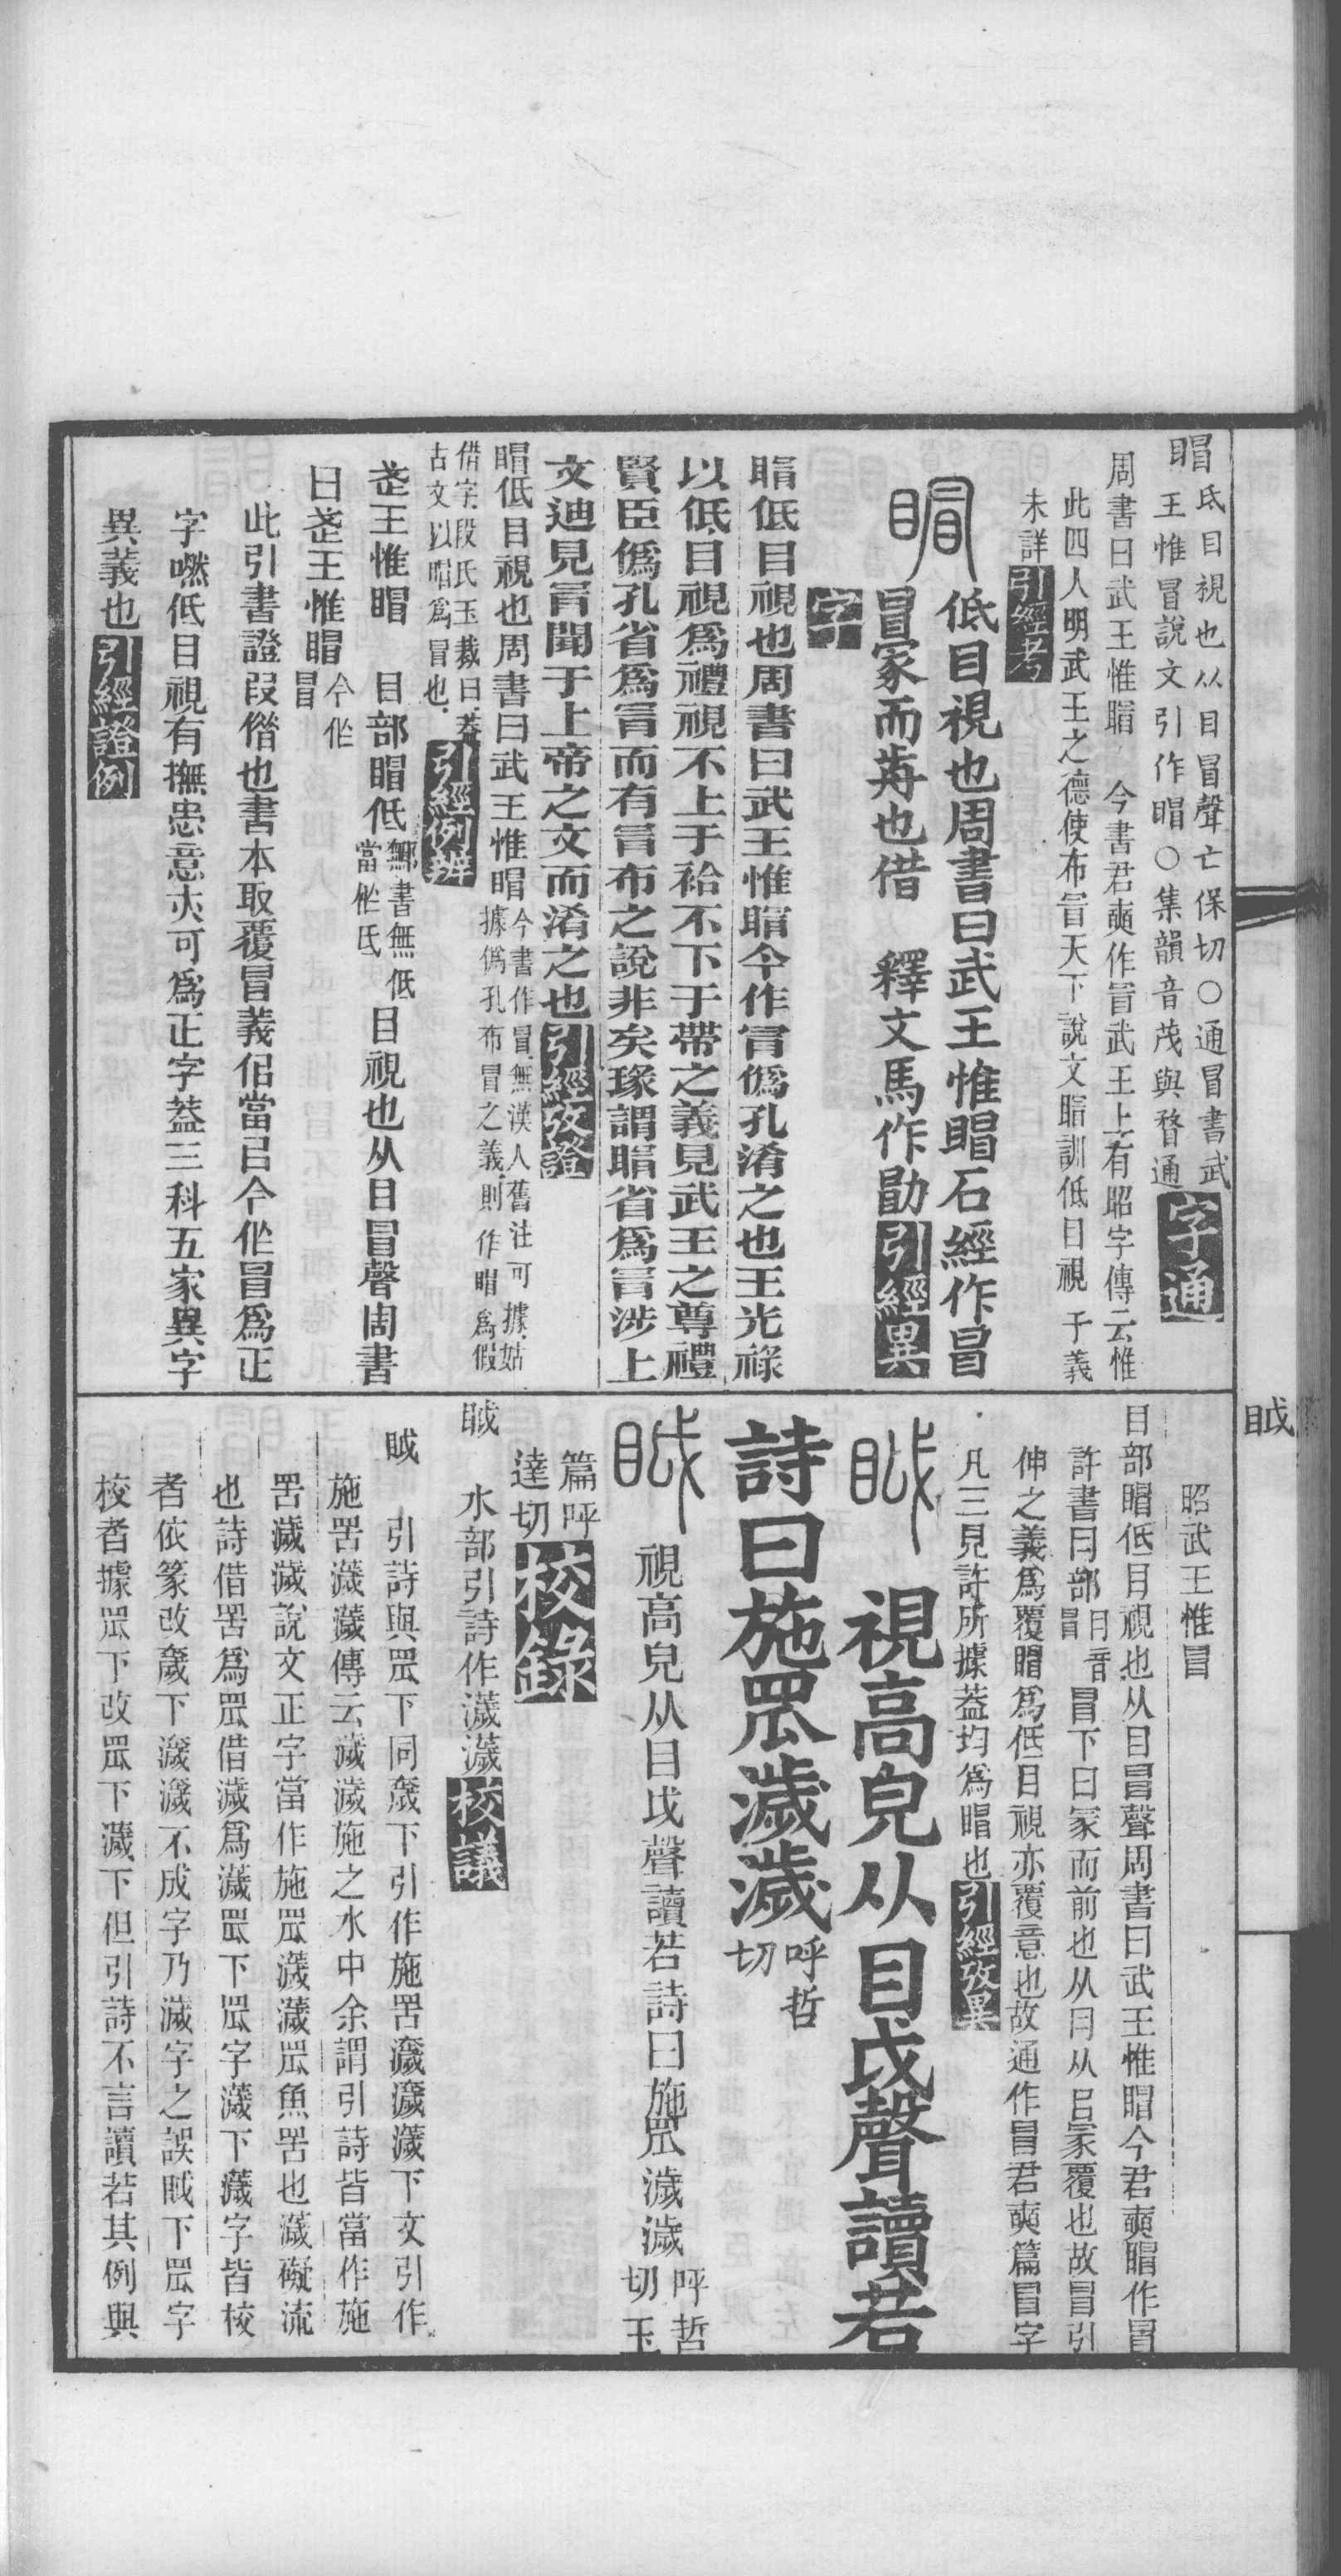 䀤
䀤氐目視也从目冒聲亡保切○通冒書武
王惟冒說文引作䀤○集韻音茂與瞀通字通
周書曰武王惟䀤 今書君奭作冒武王上有昭字傳云惟
此四人明武王之德使布冒天下說文䀤訓低目視 于義
未詳引經考
低目視也周書曰武王惟䀤石經作冒
冒冡而歬也借 釋文馬作勖引經異
字
䀤低目視也周書曰武王惟䀤今作冒僞孔淆之也王光祿
以低目視爲禮視不上于袷不下于帶之義見武王之尊禮
賢臣僞孔省爲冒而有冒布之說非矣瑑謂䀤省爲冒涉上
文迪見冒聞于上帝之文而淆之也引經攷證
䀤低目視也周書曰武王惟䀤今書作冒無漢人舊注可據姑
據僞孔布冒之義則作䀤爲假
借字段氏玉裁曰葢
古文以䀤爲冒也引經例辨
武王惟䀤 目部䀤低鄦書無低
當作氐目視也从目冒聲周書
曰武王惟䀤今作
冒
此引書證叚借也書本取覆冒義侶當已今作冒爲正
字嘫低目視有撫恖意亦可爲正字葢三科五家異字
異義也引經證例
昭武王惟冒
目部䀤低目視也从目冒聲周書曰武王惟䀤今君奭䀤作冒
許書冃部冃音
冒冒下曰冡而前也从冃从目冡覆也故冒引
伸之義爲覆䀤爲低目視亦覆意也故通作冒君奭篇冒字
凡三見許所據葢均爲䀤也引經攷異
視高皃从目戉聲讀若
詩曰施罛濊濊呼哲
切
視高皃从目戉聲讀若詩曰施罛濊濊呼哲
切玉
篇呼
達切校錄
䀤 水部引詩作濊濊校議
引詩與罛下同薉下引作施罟濊濊濊下文引作
施罟濊濊傳云濊濊施之水中余謂引詩皆當作施
罟濊濊說文正字當作施罛濊濊罛魚罟也濊礙流
也詩借罟爲罛借濊爲濊罛下罛字濊下薉字皆校
者依篆改薉下濊濊不成字乃濊字之誤䀤下罛字
校者據罛下改罛下濊下但引詩不言讀若其例與